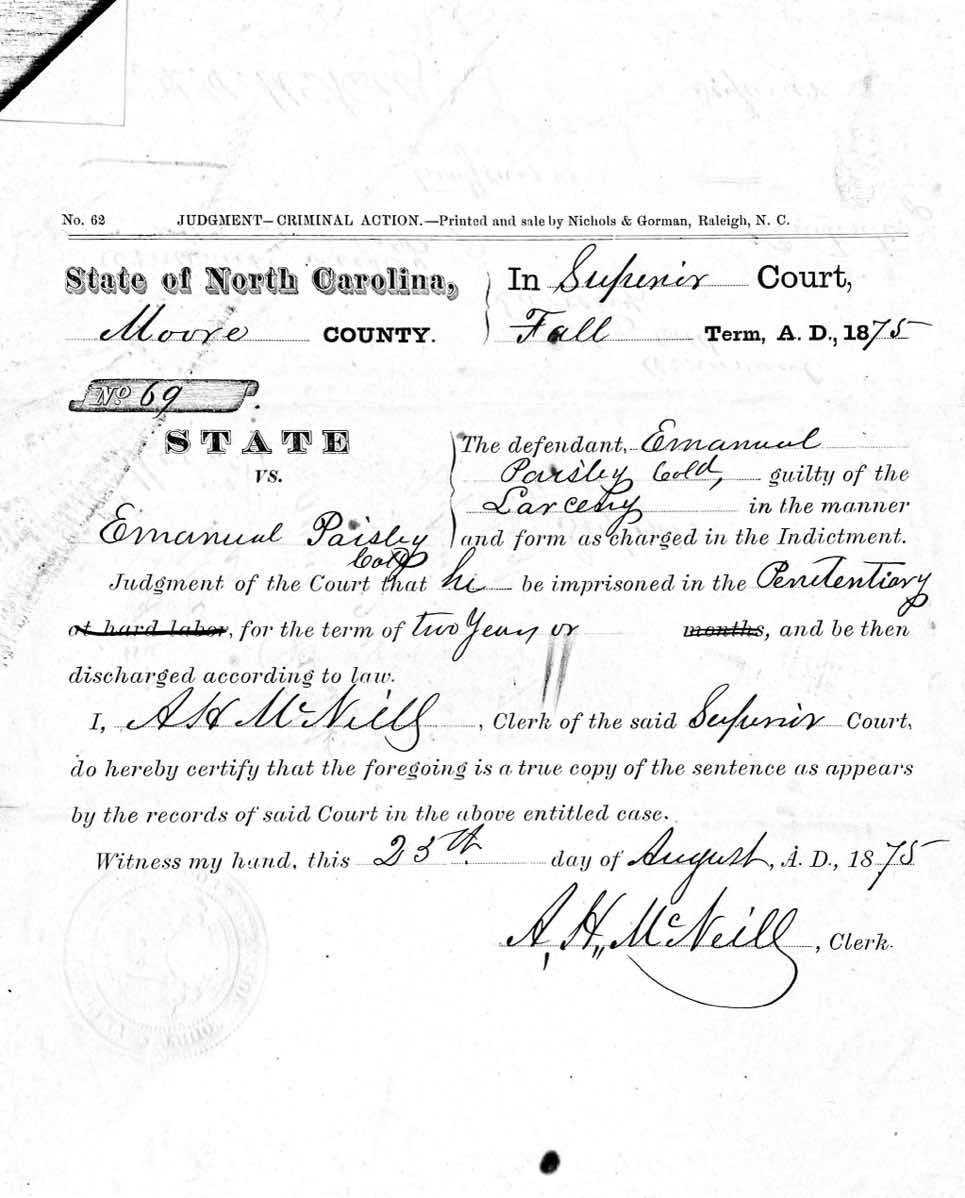 No. 62 JUDGMENT—CRIMINAL ACTION.—Printed and sale by Nichols & Gorman, Raleigh, N. C.
State of North Carolina,
Moore COUNTY.
In Superior Court,
Fall Term, A. D., 1875
No 69
STATE
VS.
Emanuel Paisley
Cold
The defendant, Emanuel
Paisley Cold, guilty of the
Larceny in the manner
and form as charged in the Indictment.
Judgment of the Court that he be imprisoned in the Penitentiary
at hard labor, for the term of two Years or months, and be then
discharged according to law.
I, A H McNeill, Clerk of the said Superior Court,
do hereby certify that the foregoing is a true copy of the sentence as appears
by the records of said Court in the above entitled case.
Witness my hand, this 25th day of August, A. D., 1875
A. H. McNeill, Clerk.